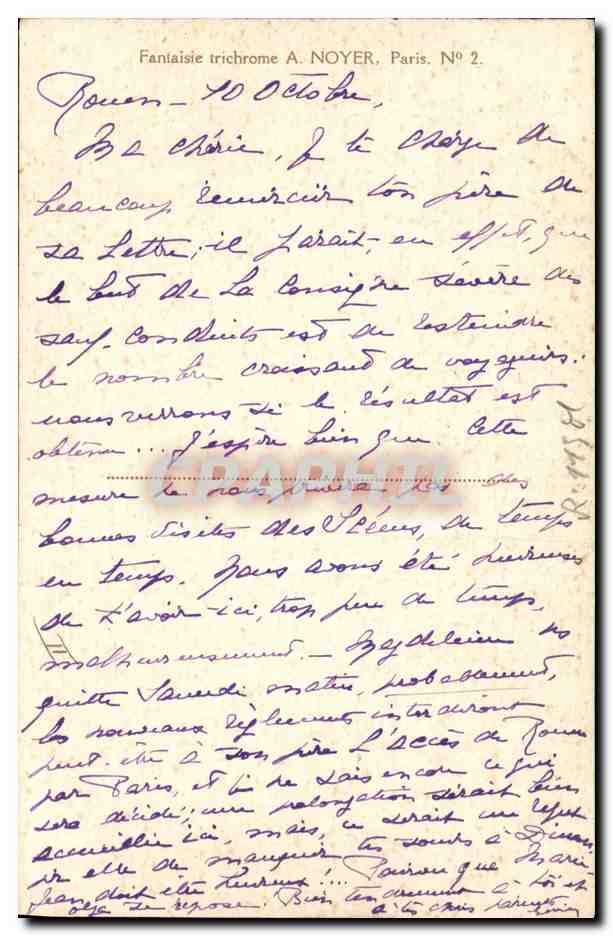 Fantaisie trichrome A. NOYER, Paris. Nº 2.
Rouen - 10 Octobre,
Ma chérie, je te charge de
beaucoup remercier ton père de
sa lettre; il paraît, en effet, que
le but de la consigne sévère des
sauf-conduits est de restreindre
le nombre croissant de voyageurs:
nous verrons si le résultat est
obtenu... J'espère bien que cette
mesure ne nous privera pas des
bonnes visites des de temps
en temps. Nous avons été heureuses
de t'avoir ici, trop peu de temps,
malheureusement. - Magdeleine ns
quitte Samedi matin, probablement,
les nouveaux règlements interdiront
peut-être à son père l'accès de Rouen
par Paris, et je ne sais encore ce qui
sera décidé; une prolongation serait bien
accueillie ici, mais, ce serait un
pr elle de manquer tes sœurs à Dinan,
que Marie
Jean doit être heureux!... 
se repose! Bien tendrement à toi et
à tes chers parents
CPAPHIL
R. 11301
II